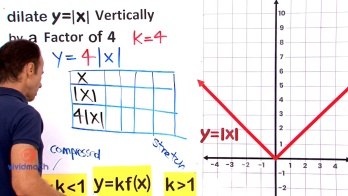 dilate y=|x| Vertically
by a Factor of 4 K=4
y = 4|x|
x
|x|
4|x|
compressed
stretch
vividmath
k<1
y=kf(x)
k>1
y=|x|
10
9
8
7
6
5
4
3
2
1
-4 -3 -2 -1 0 1 2 3 4